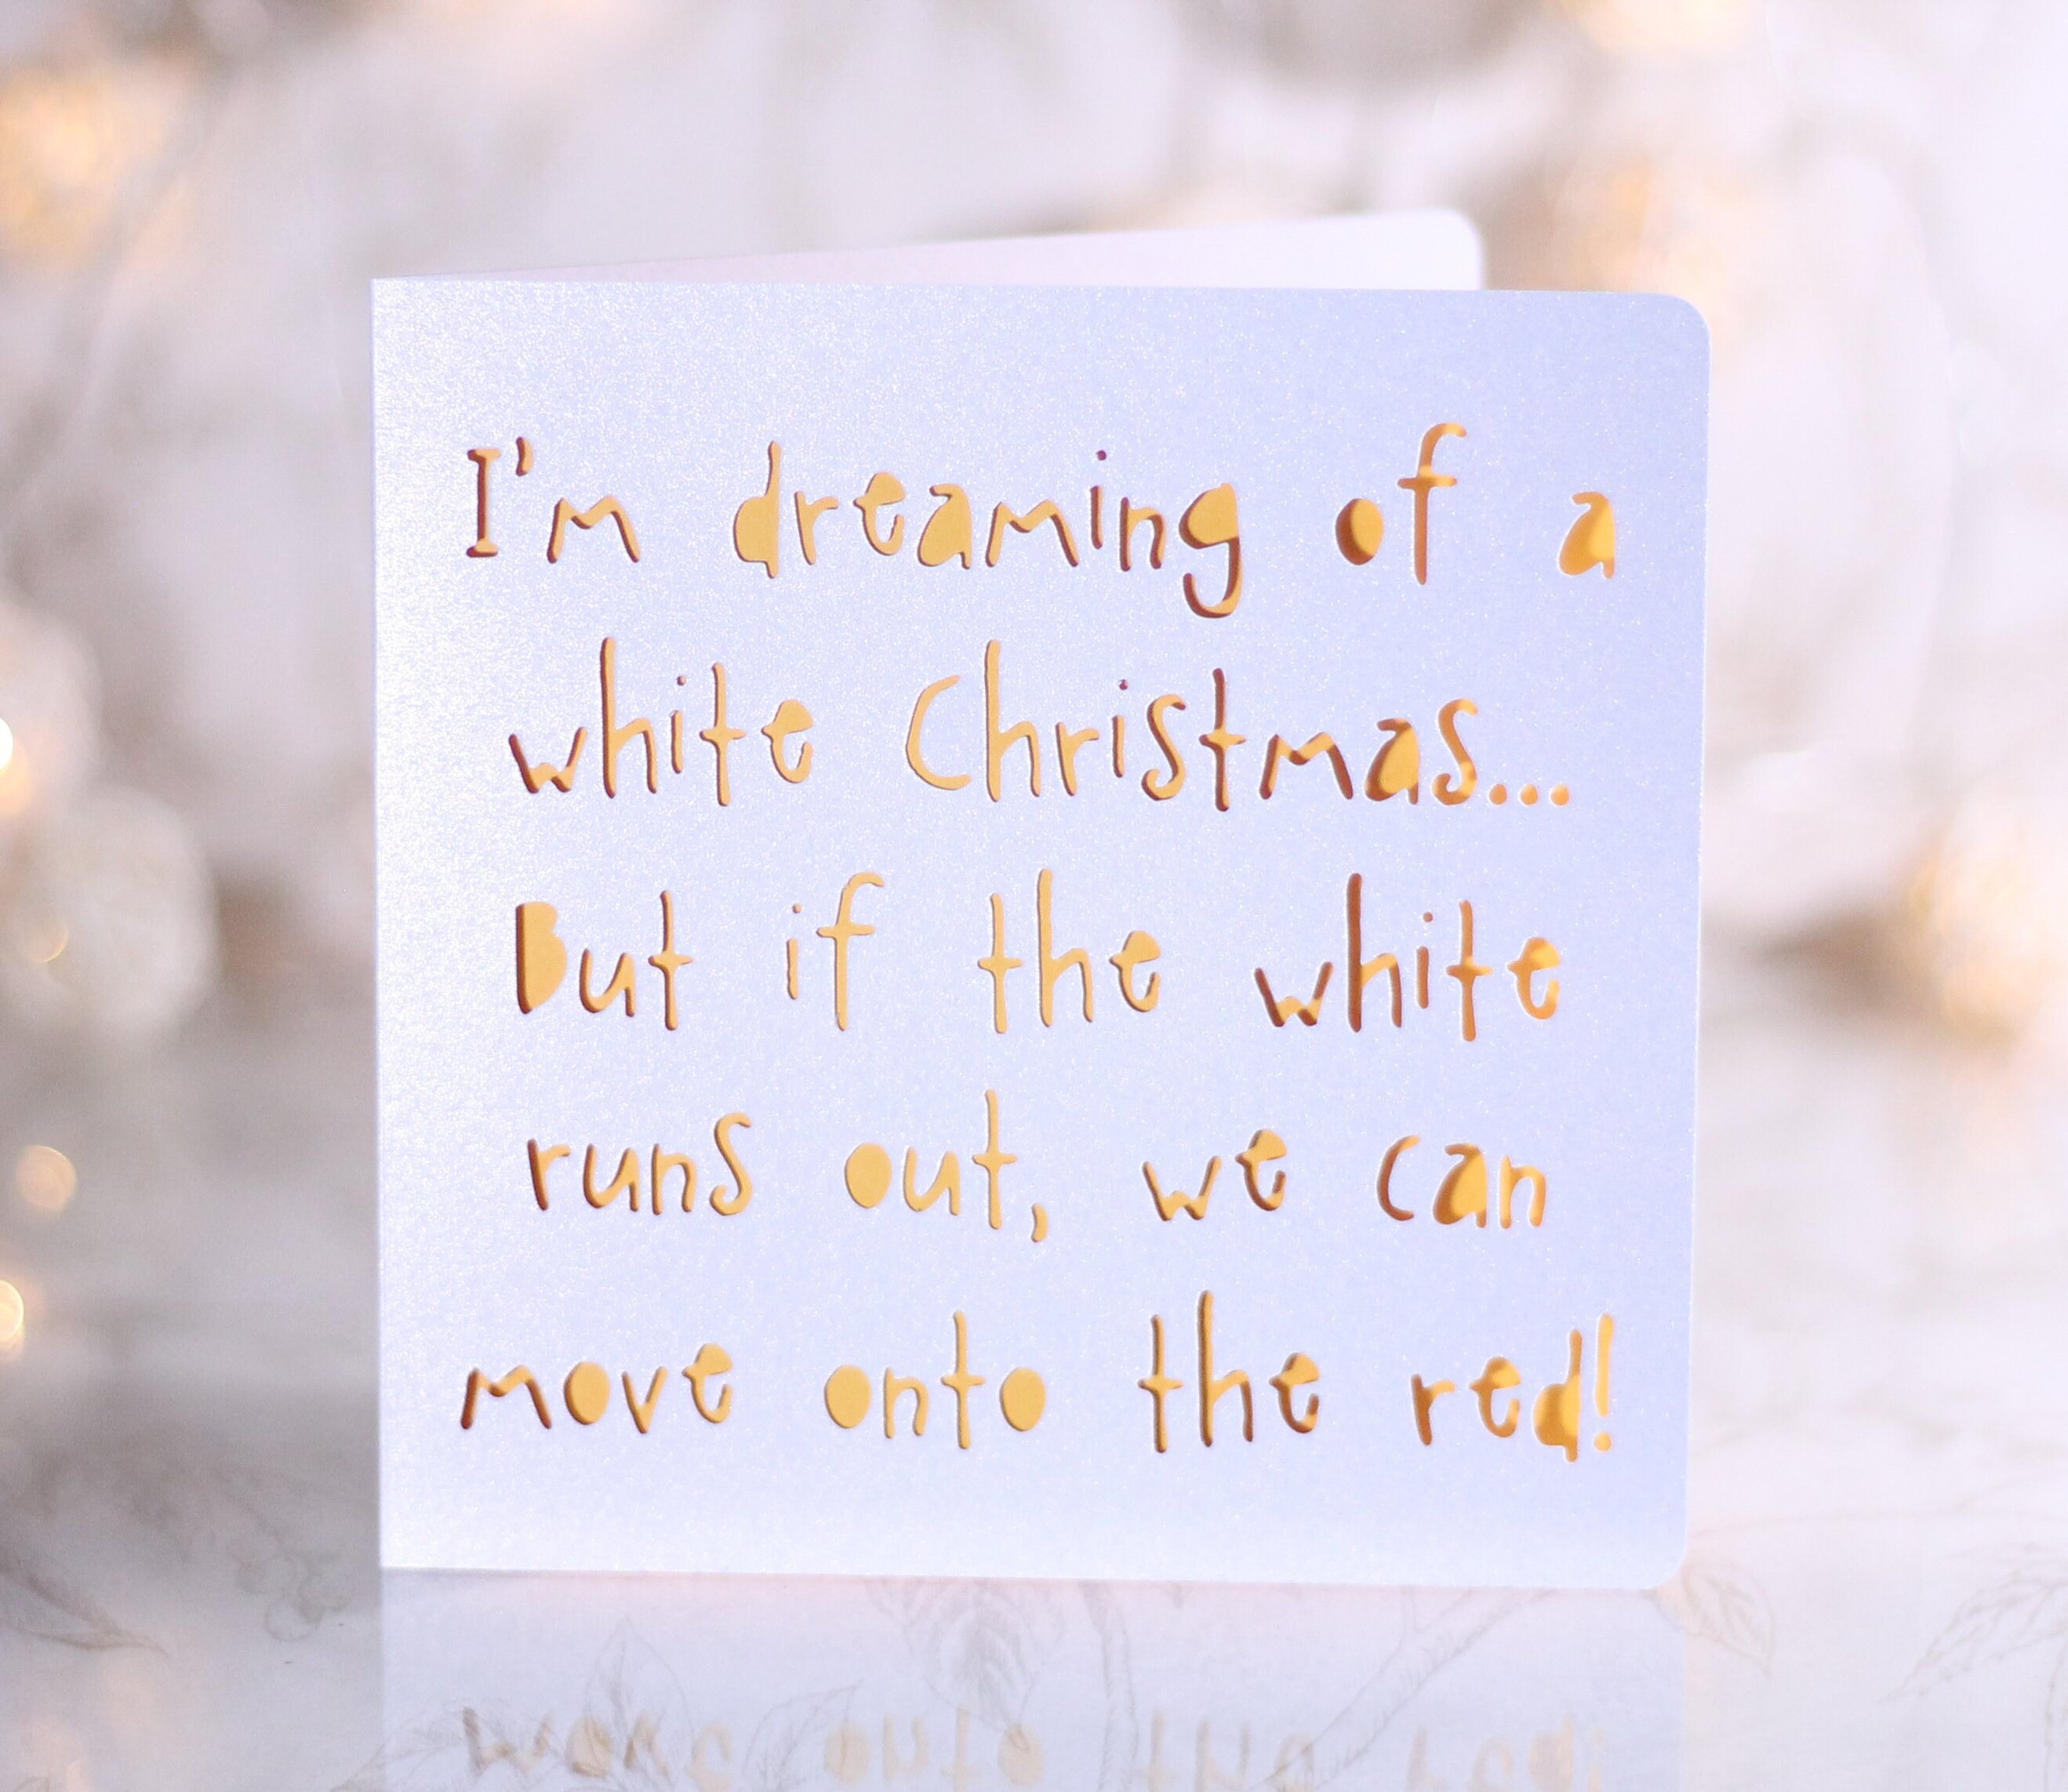 I'm dreaming of a
white Christmas...
But if the white
runs out, we can
move onto the red!